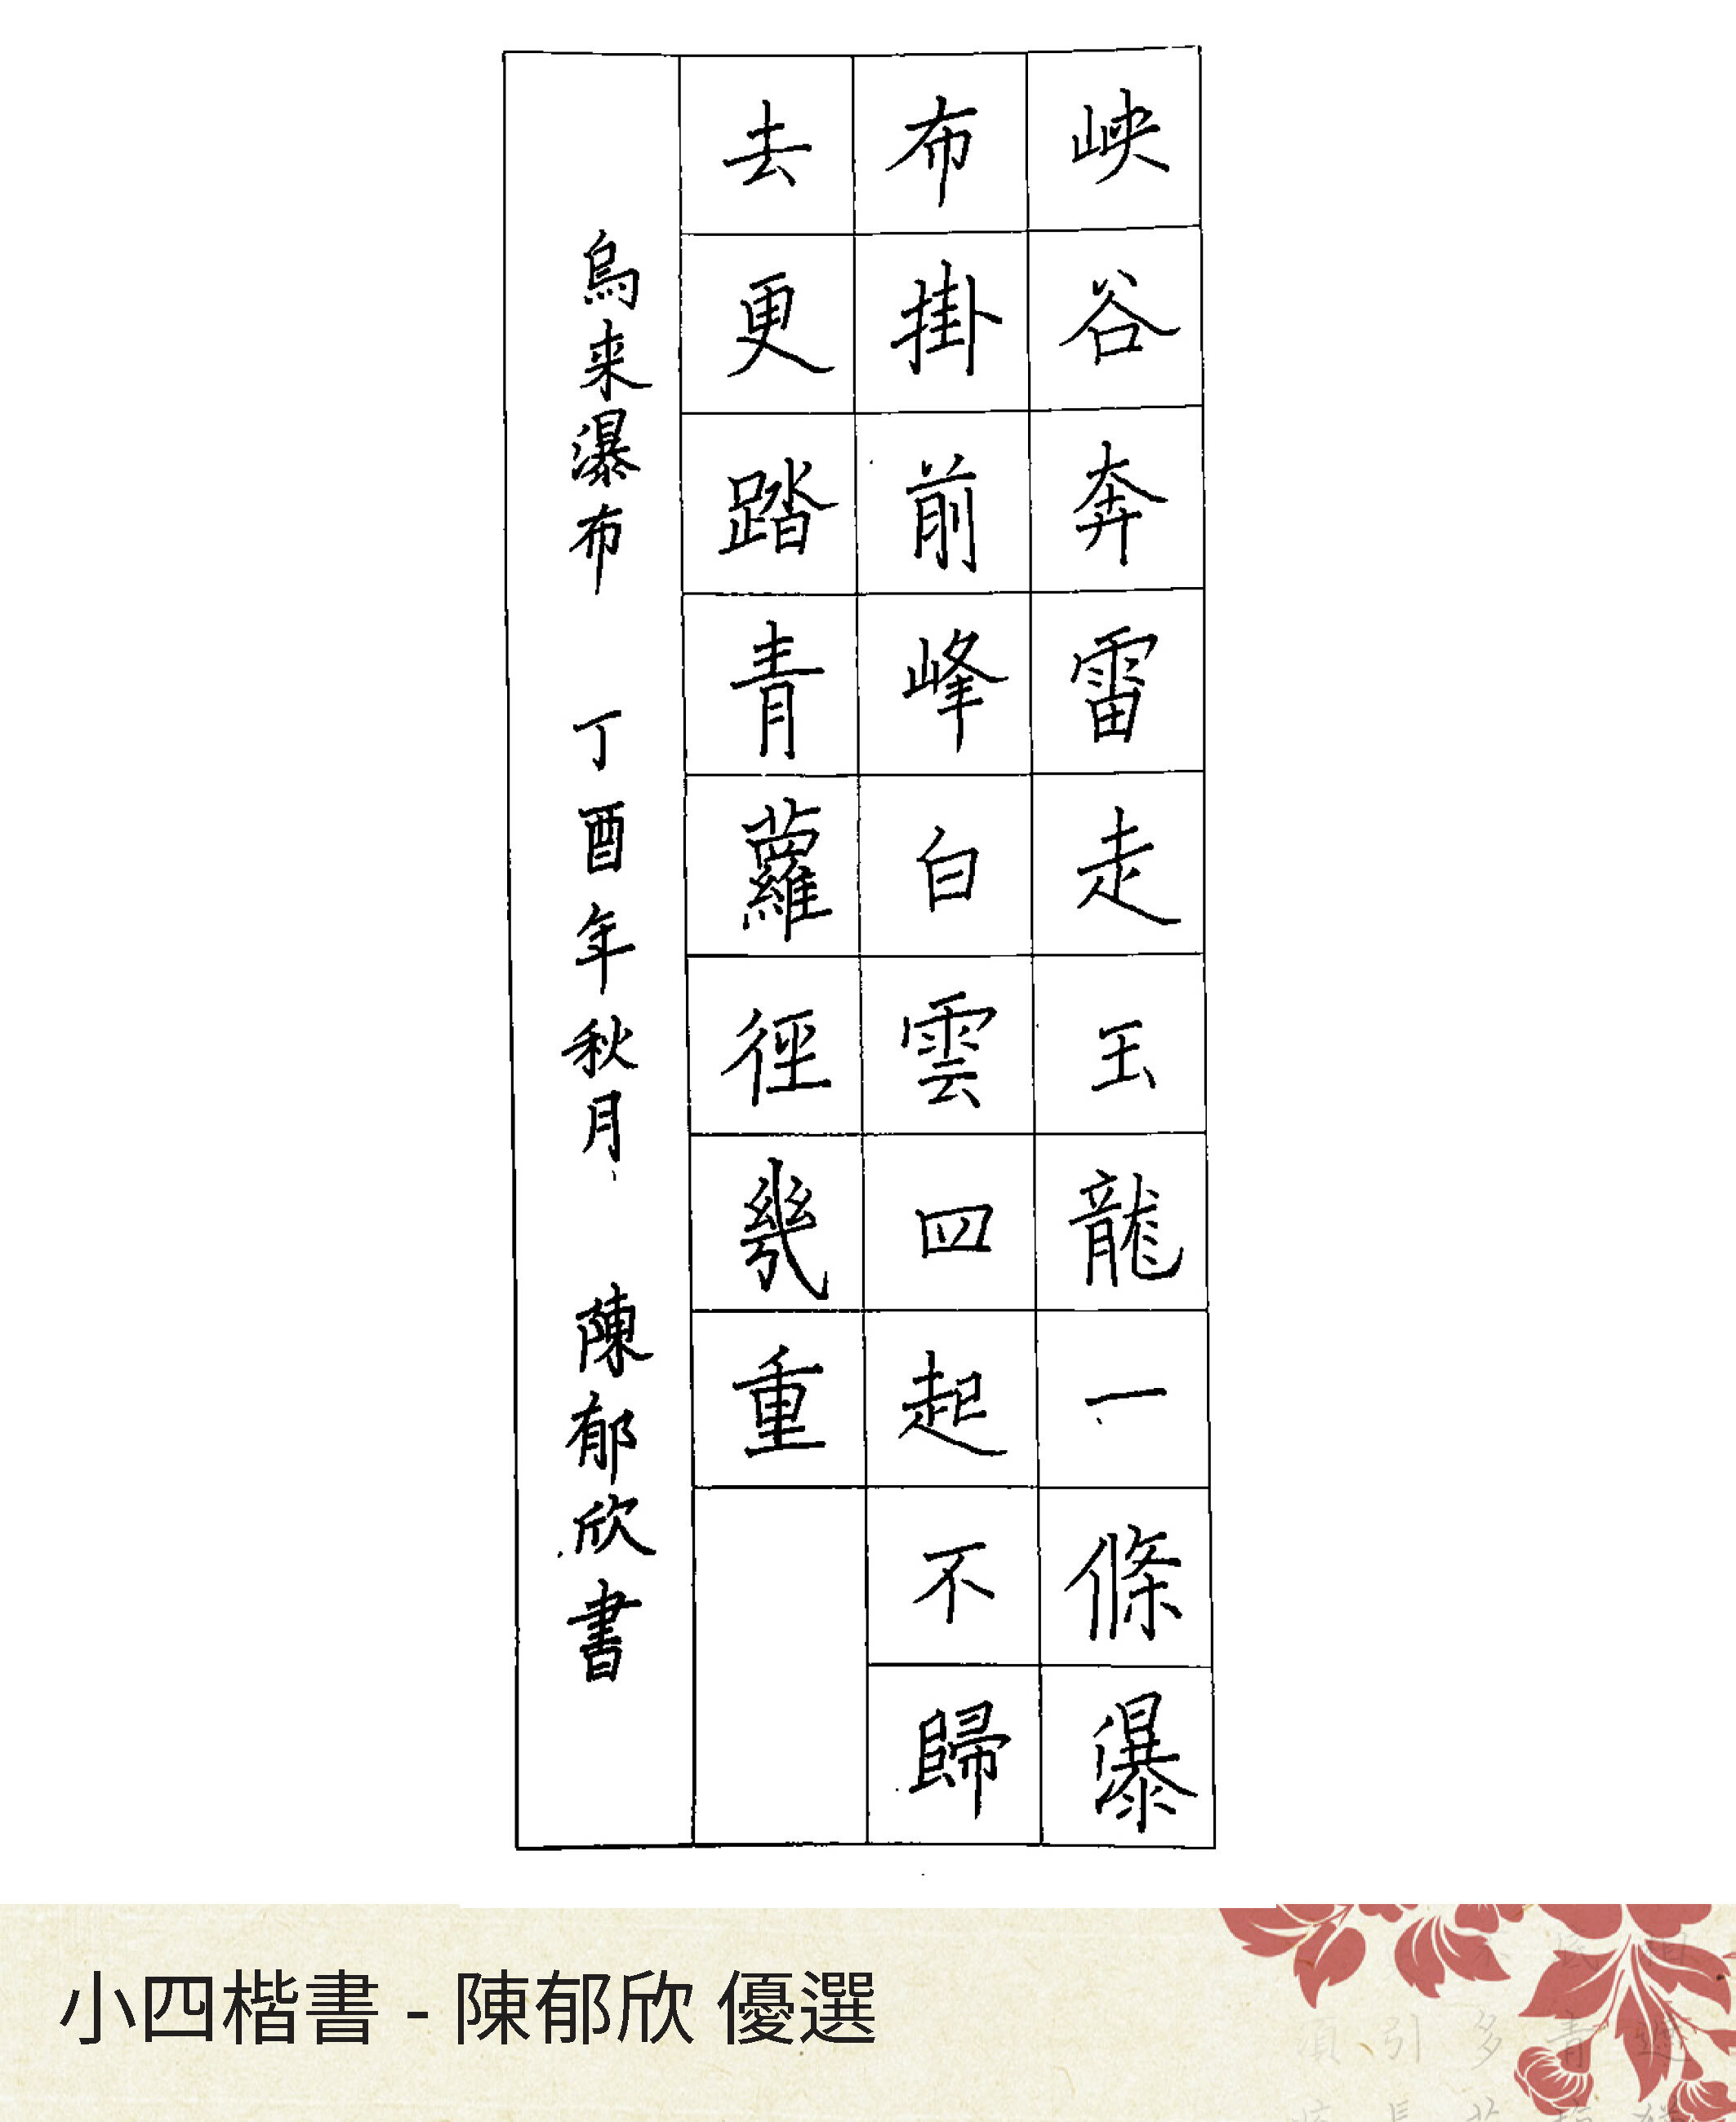 峽谷奔雷走玉龍一條瀑
布掛前峰白雲四起不歸
去更踏青蘿徑幾重
烏来瀑布 丁酉年秋月 陳郁欣書
小四楷書 - 陳郁欣 優選